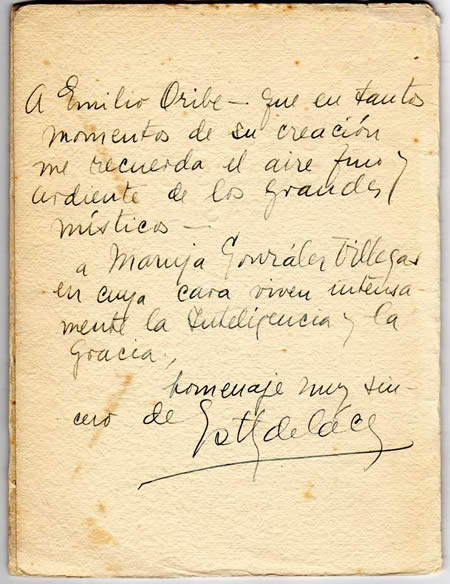 A Emilio Oribe — que en tantos
momentos de su creación
me recuerda el aire fino y
ardiente de los grandes
místicos —
a Maruja González Villegas
en cuya cara viven intensa-
mente la Inteligencia y la
Gracia,
homenaje muy sin-
cero de Esther de Cáceres